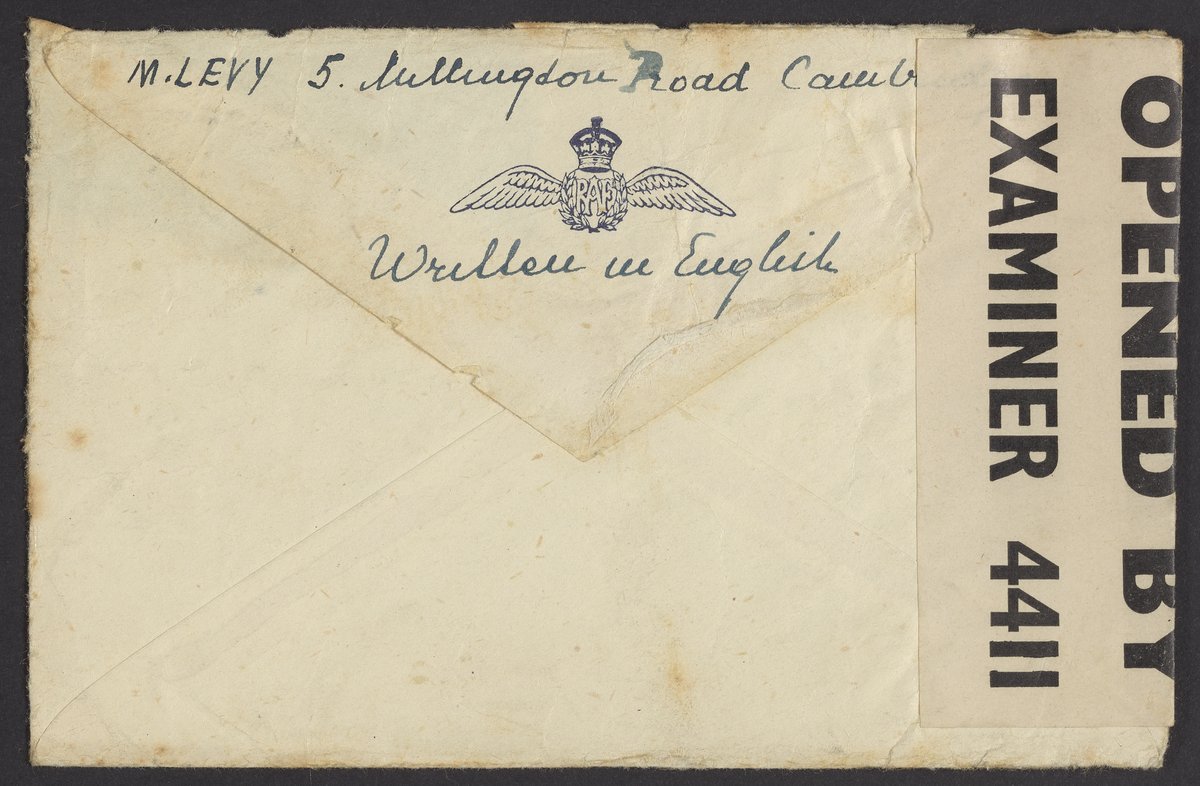 M. LEVY 5. Millington Road Camb
RAF
Written in English
OPENED BY
EXAMINER 4411